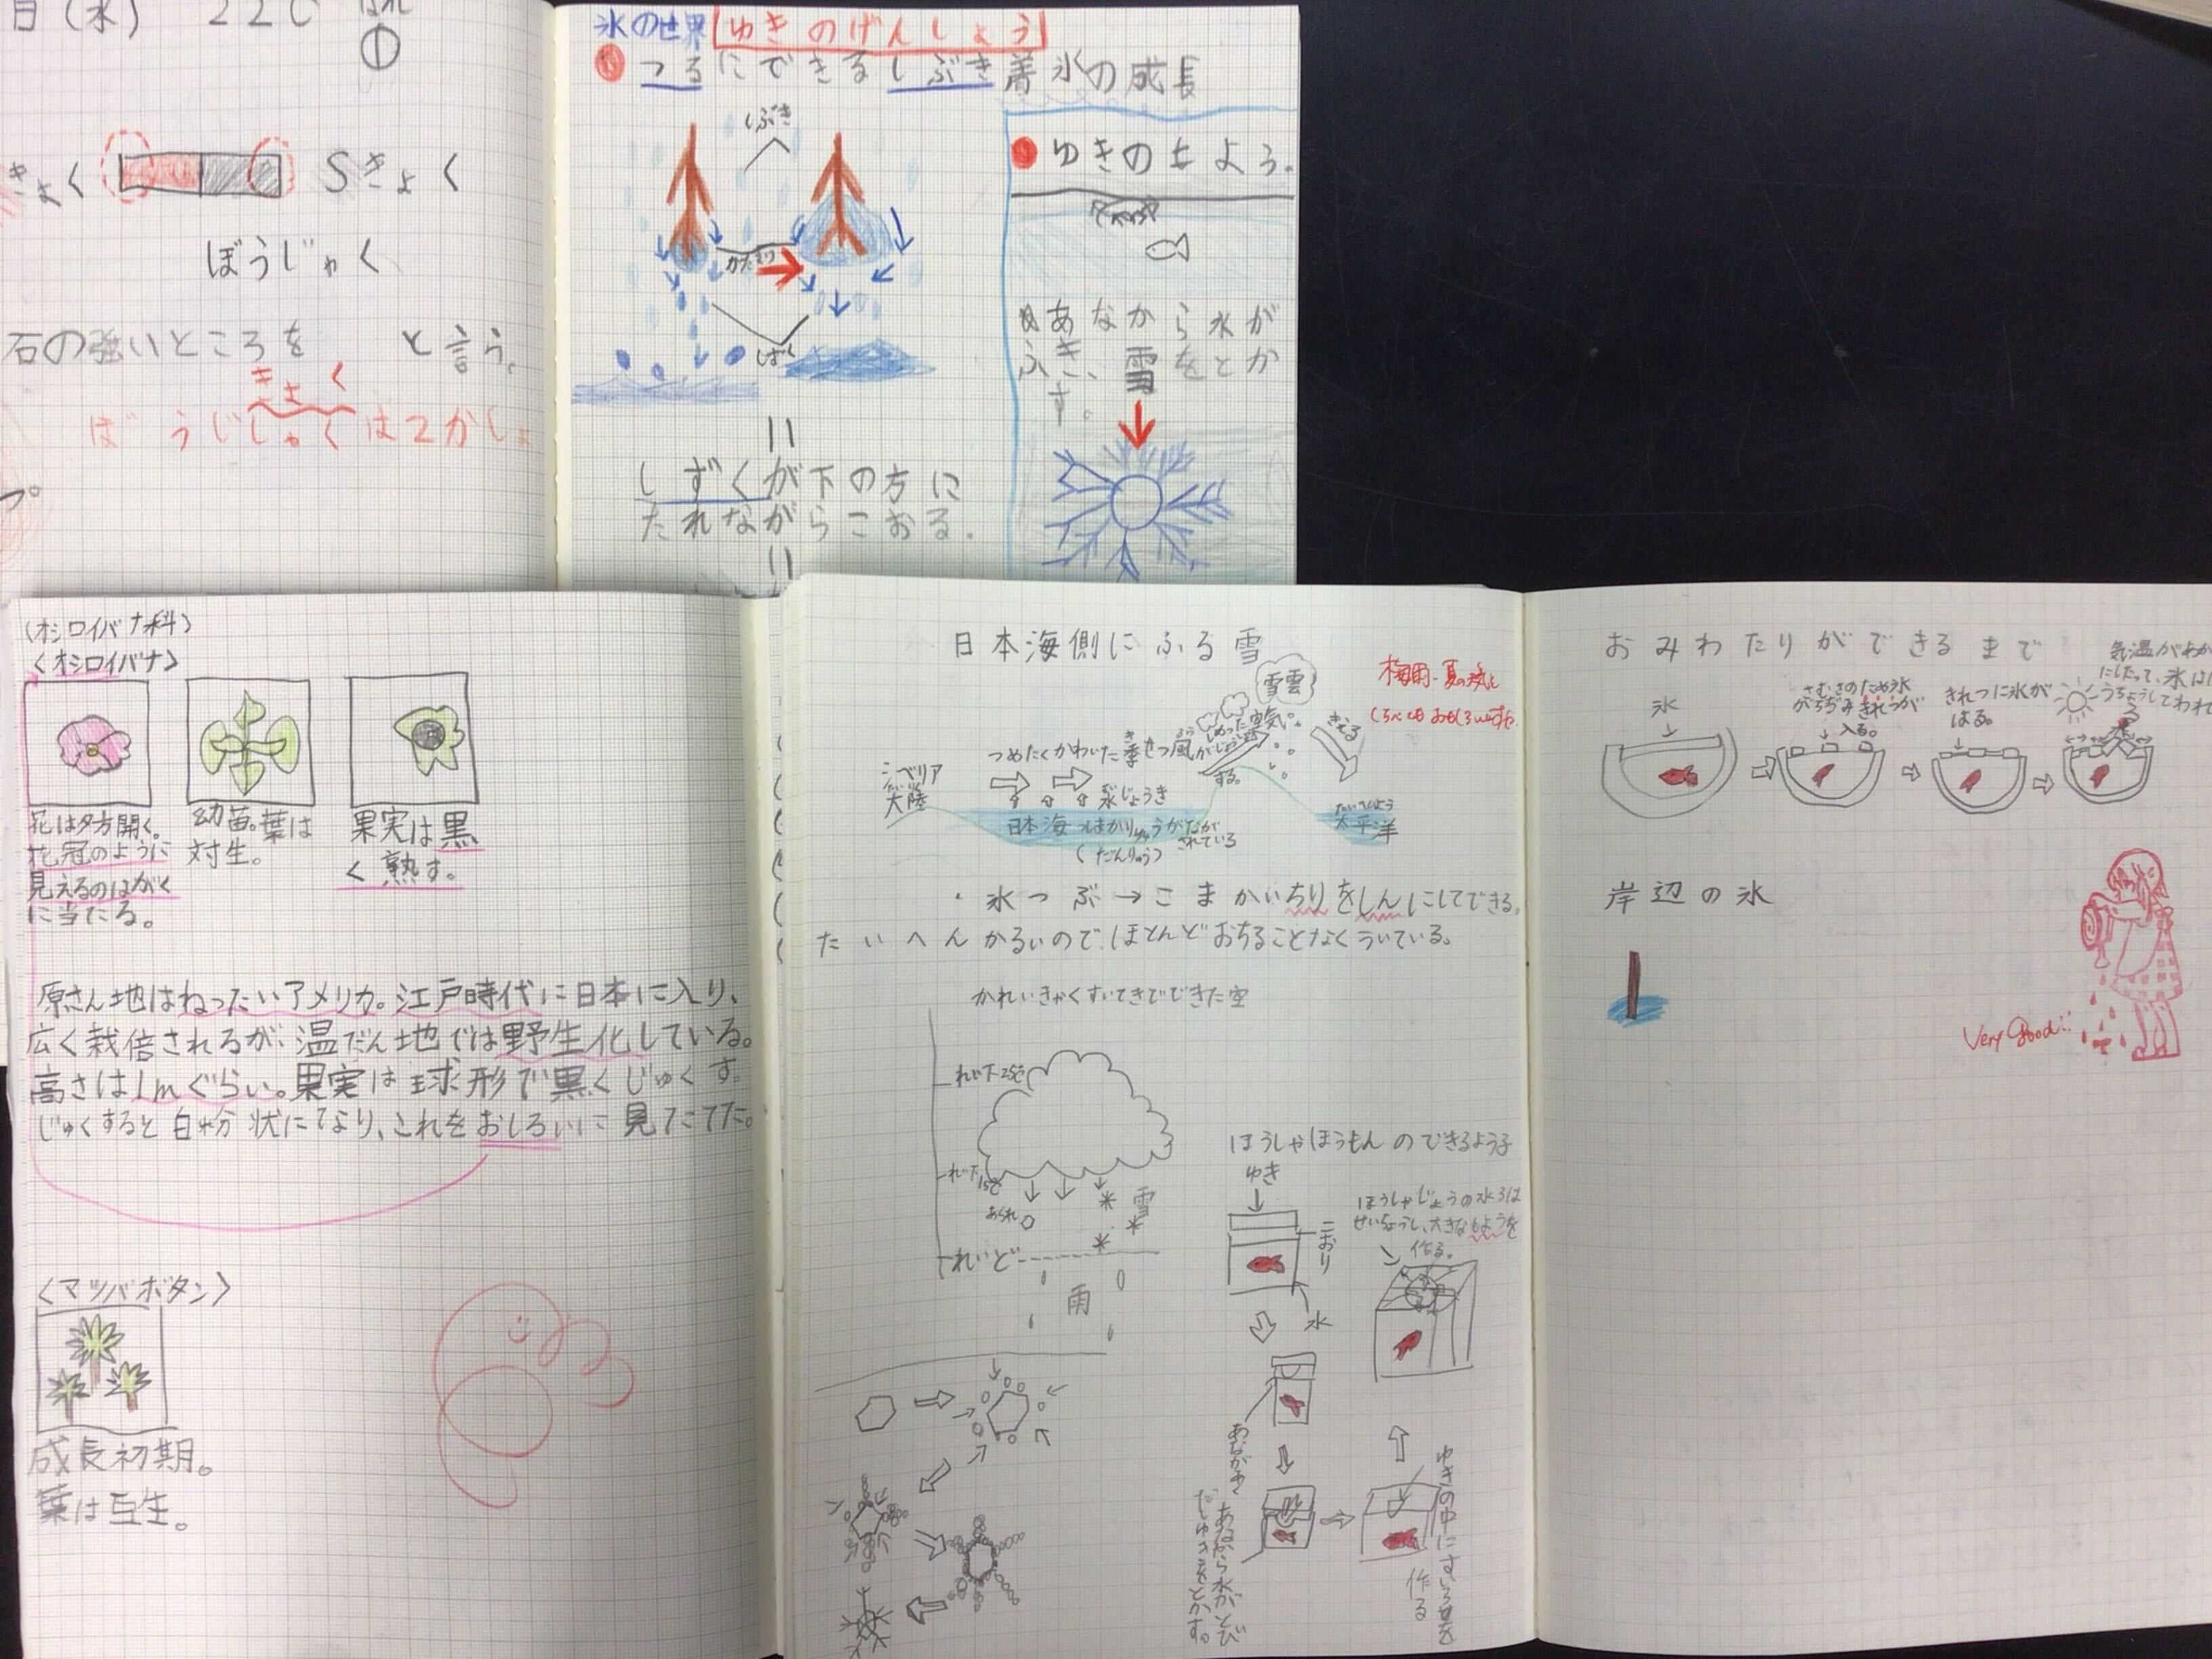 日(水) 22℃
はれ
①
きょく
Sきょく
ぼうじゃく
石の強いところを
と言う。
きょく
ぼうじしゃくは2かしょ
氷の世界 ゆきのげんしょう
つるにできるしぶき着氷の成長
しぶき
かたまり
しずくが下の方に
たれながらこおる.
ゆきのもよう.
あなから水が
ふき、雪をとか
す。
(オシロイバナ科)
〈オシロイバナ〉
花は夕方開く。
花冠のように
見えるのはがく
に当たる。
幼苗。葉は
対生。
果実は黒
く熟す。
原さん地はねったいアメリカ。江戸時代に日本に入り、
広く栽倍されるが、温だん地では野生化している。
高さは1mぐらい。果実は球形で黒くじゅくす。
じゅくすると白粉状になり、これをおしろいに見たてた。
〈マツバボタン〉
成長初期。
葉は互生。
日本海側にふる雪
雪雲
つめたくかわいた季せつ風が
しめった空気。
する。
きえる
シベリア
大陸
水じょうき
日本海
(だんりゅう)
ながされている
たいへいよう
太平洋
・氷つぶ→こまかいちりをしんにしてできる。
たいへんかるいので、ほとんどおちることなくういている。
かれいきゃくすいてきでできた空
れい下
れい下15ど
あられ
雪
れいど
雨
ほうしゃほうもんのできるよう子
ゆき
こおり
水
ほうしゃじょうの水ろは
せいちょうし、大きなもようを
作る。
あながあく
あなから水がとび
だしゆきをとかす。
ゆきの中にすいろを
作る
おみわたりができるまで
氷
さむさのため氷
がちぢみきれつが
入る。
きれつに氷が
はる。
岸辺の氷
Very Good!!